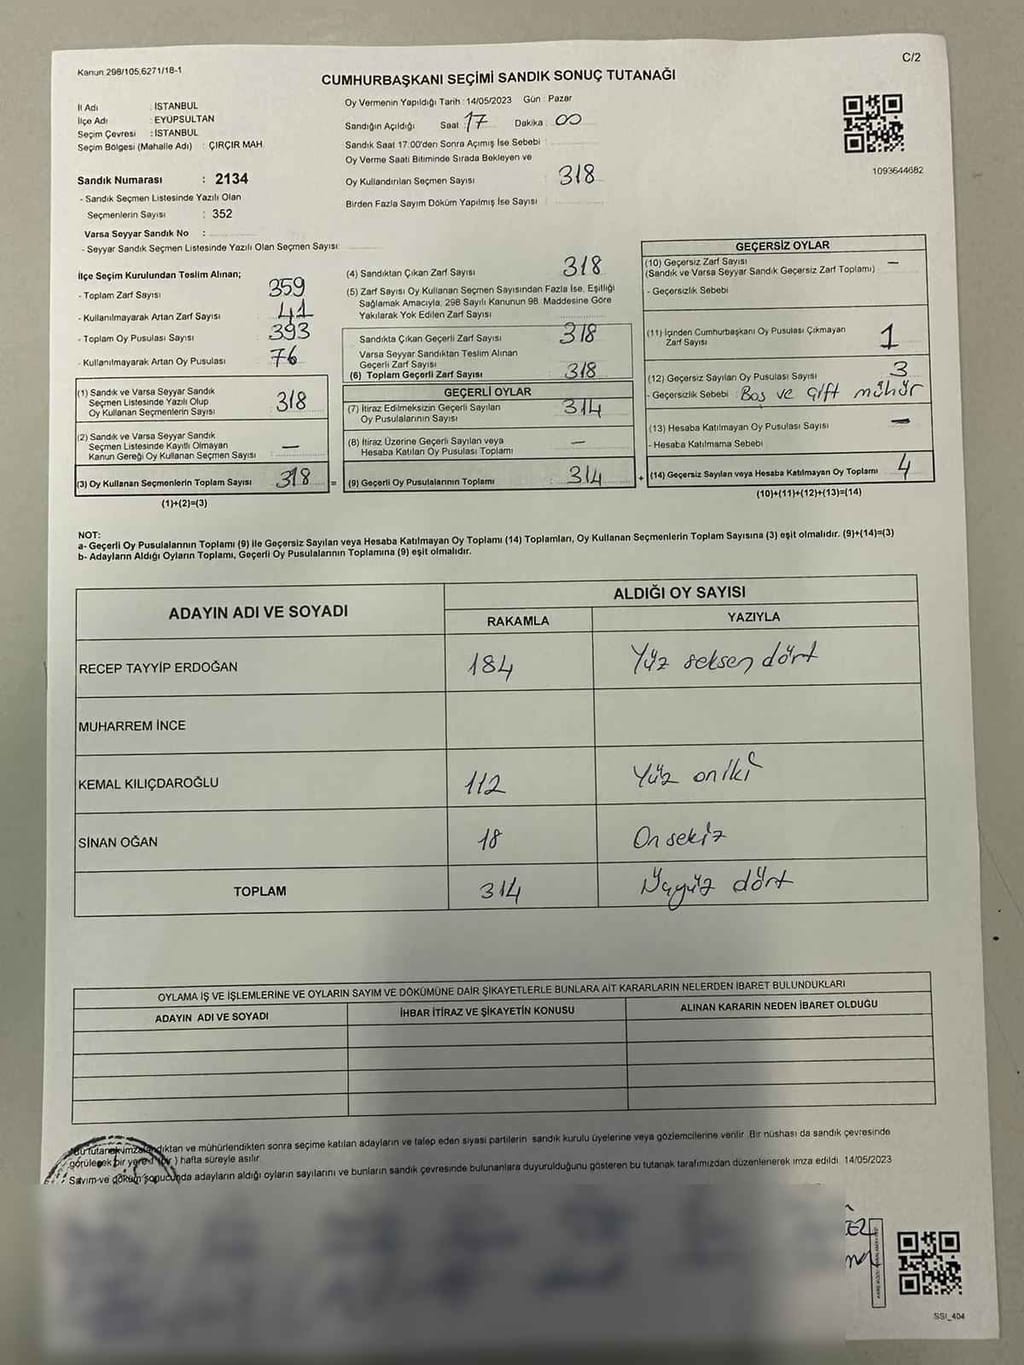 C/2
Kanun 298/105,6271/18-1
CUMHURBAŞKANI SEÇİMİ SANDIK SONUÇ TUTANAĞI
İl Adı : İSTANBUL
İlçe Adı : EYÜPSULTAN
Seçim Çevresi : İSTANBUL
Seçim Bölgesi (Mahalle Adı) : ÇIRÇIR MAH.
Sandık Numarası : 2134
- Sandık Seçmen Listesinde Yazılı Olan
Seçmenlerin Sayısı : 352
Varsa Seyyar Sandık No :
- Seyyar Sandık Seçmen Listesinde Yazılı Olan Seçmen Sayısı:
Oy Vermenin Yapıldığı Tarih : 14/05/2023 Gün : Pazar
Sandığın Açıldığı Saat : 17 Dakika : 00
Sandık Saat 17:00'den Sonra Açımış İse Sebebi :
Oy Verme Saati Bitiminde Sırada Bekleyen ve
Oy Kullandırılan Seçmen Sayısı 318
Birden Fazla Sayım Döküm Yapılmış İse Sayısı
1093644682
İlçe Seçim Kurulundan Teslim Alınan;
- Toplam Zarf Sayısı 359
- Kullanılmayarak Artan Zarf Sayısı 41
- Toplam Oy Pusulası Sayısı 393
- Kullanılmayarak Artan Oy Pusulası 76
(1) Sandık ve Varsa Seyyar Sandık
Seçmen Listesinde Yazılı Olup
Oy Kullanan Seçmenlerin Sayısı 318
(2) Sandık ve Varsa Seyyar Sandık
Seçmen Listesinde Kayıtlı Olmayan
Kanun Gereği Oy Kullanan Seçmen Sayısı —
(3) Oy Kullanan Seçmenlerin Toplam Sayısı 318 =
(1)+(2)=(3)
(4) Sandıktan Çıkan Zarf Sayısı 318
(5) Zarf Sayısı Oy Kullanan Seçmen Sayısından Fazla İse, Eşitliği
Sağlamak Amacıyla, 298 Sayılı Kanunun 98. Maddesine Göre
Yakılarak Yok Edilen Zarf Sayısı
Sandıkta Çıkan Geçerli Zarf Sayısı 318
Varsa Seyyar Sandıktan Teslim Alınan
Geçerli Zarf Sayısı
(6) Toplam Geçerli Zarf Sayısı 318
GEÇERLİ OYLAR
(7) İtiraz Edilmeksizin Geçerli Sayılan
Oy Pusulalarının Sayısı 314
(8) İtiraz Üzerine Geçerli Sayılan veya
Hesaba Katılan Oy Pusulası Toplamı —
(9) Geçerli Oy Pusulalarının Toplamı 314 +
GEÇERSİZ OYLAR
(10) Geçersiz Zarf Sayısı —
(Sandık ve Varsa Seyyar Sandık Geçersiz Zarf Toplamı)
- Geçersizlik Sebebi
(11) İçinden Cumhurbaşkanı Oy Pusulası Çıkmayan
Zarf Sayısı 1
(12) Geçersiz Sayılan Oy Pusulası Sayısı 3
- Geçersizlik Sebebi : Boş ve Çift mühür
(13) Hesaba Katılmayan Oy Pusulası Sayısı —
- Hesaba Katılmama Sebebi
(14) Geçersiz Sayılan veya Hesaba Katılmayan Oy Toplamı 4
(10)+(11)+(12)+(13)=(14)
NOT:
a- Geçerli Oy Pusulalarının Toplamı (9) ile Geçersiz Sayılan veya Hesaba Katılmayan Oy Toplamı (14) Toplamları, Oy Kullanan Seçmenlerin Toplam Sayısına (3) eşit olmalıdır. (9)+(14)=(3)
b- Adayların Aldığı Oyların Toplamı, Geçerli Oy Pusulalarının Toplamına (9) eşit olmalıdır.
ADAYIN ADI VE SOYADI ALDIĞI OY SAYISI
RAKAMLA YAZIYLA
RECEP TAYYİP ERDOĞAN 184 Yüz seksen dört
MUHARREM İNCE
KEMAL KILIÇDAROĞLU 112 Yüz oniki
SİNAN OĞAN 18 On sekiz
TOPLAM 314 Üçyüz dört
OYLAMA İŞ VE İŞLEMLERİNE VE OYLARIN SAYIM VE DÖKÜMÜNE DAİR ŞİKAYETLERLE BUNLARA AİT KARARLARIN NELERDEN İBARET BULUNDUKLARI
ADAYIN ADI VE SOYADI İHBAR İTİRAZ VE ŞİKAYETİN KONUSU ALINAN KARARIN NEDEN İBARET OLDUĞU
Bu tutanak imzalandıktan ve mühürlendikten sonra seçime katılan adayların ve talep eden siyasi partilerin sandık kurulu üyelerine veya gözlemcilerine verilir. Bir nüshası da sandık çevresinde
görülecek bir yere 1 (bir) hafta süreyle asılır.
Sayım ve döküm sonucunda adayların aldığı oyların sayılarını ve bunların sandık çevresinde bulunanlara duyurulduğunu gösteren bu tutanak tarafımızdan düzenlenerek imza edildi. 14/05/2023
SSI_404